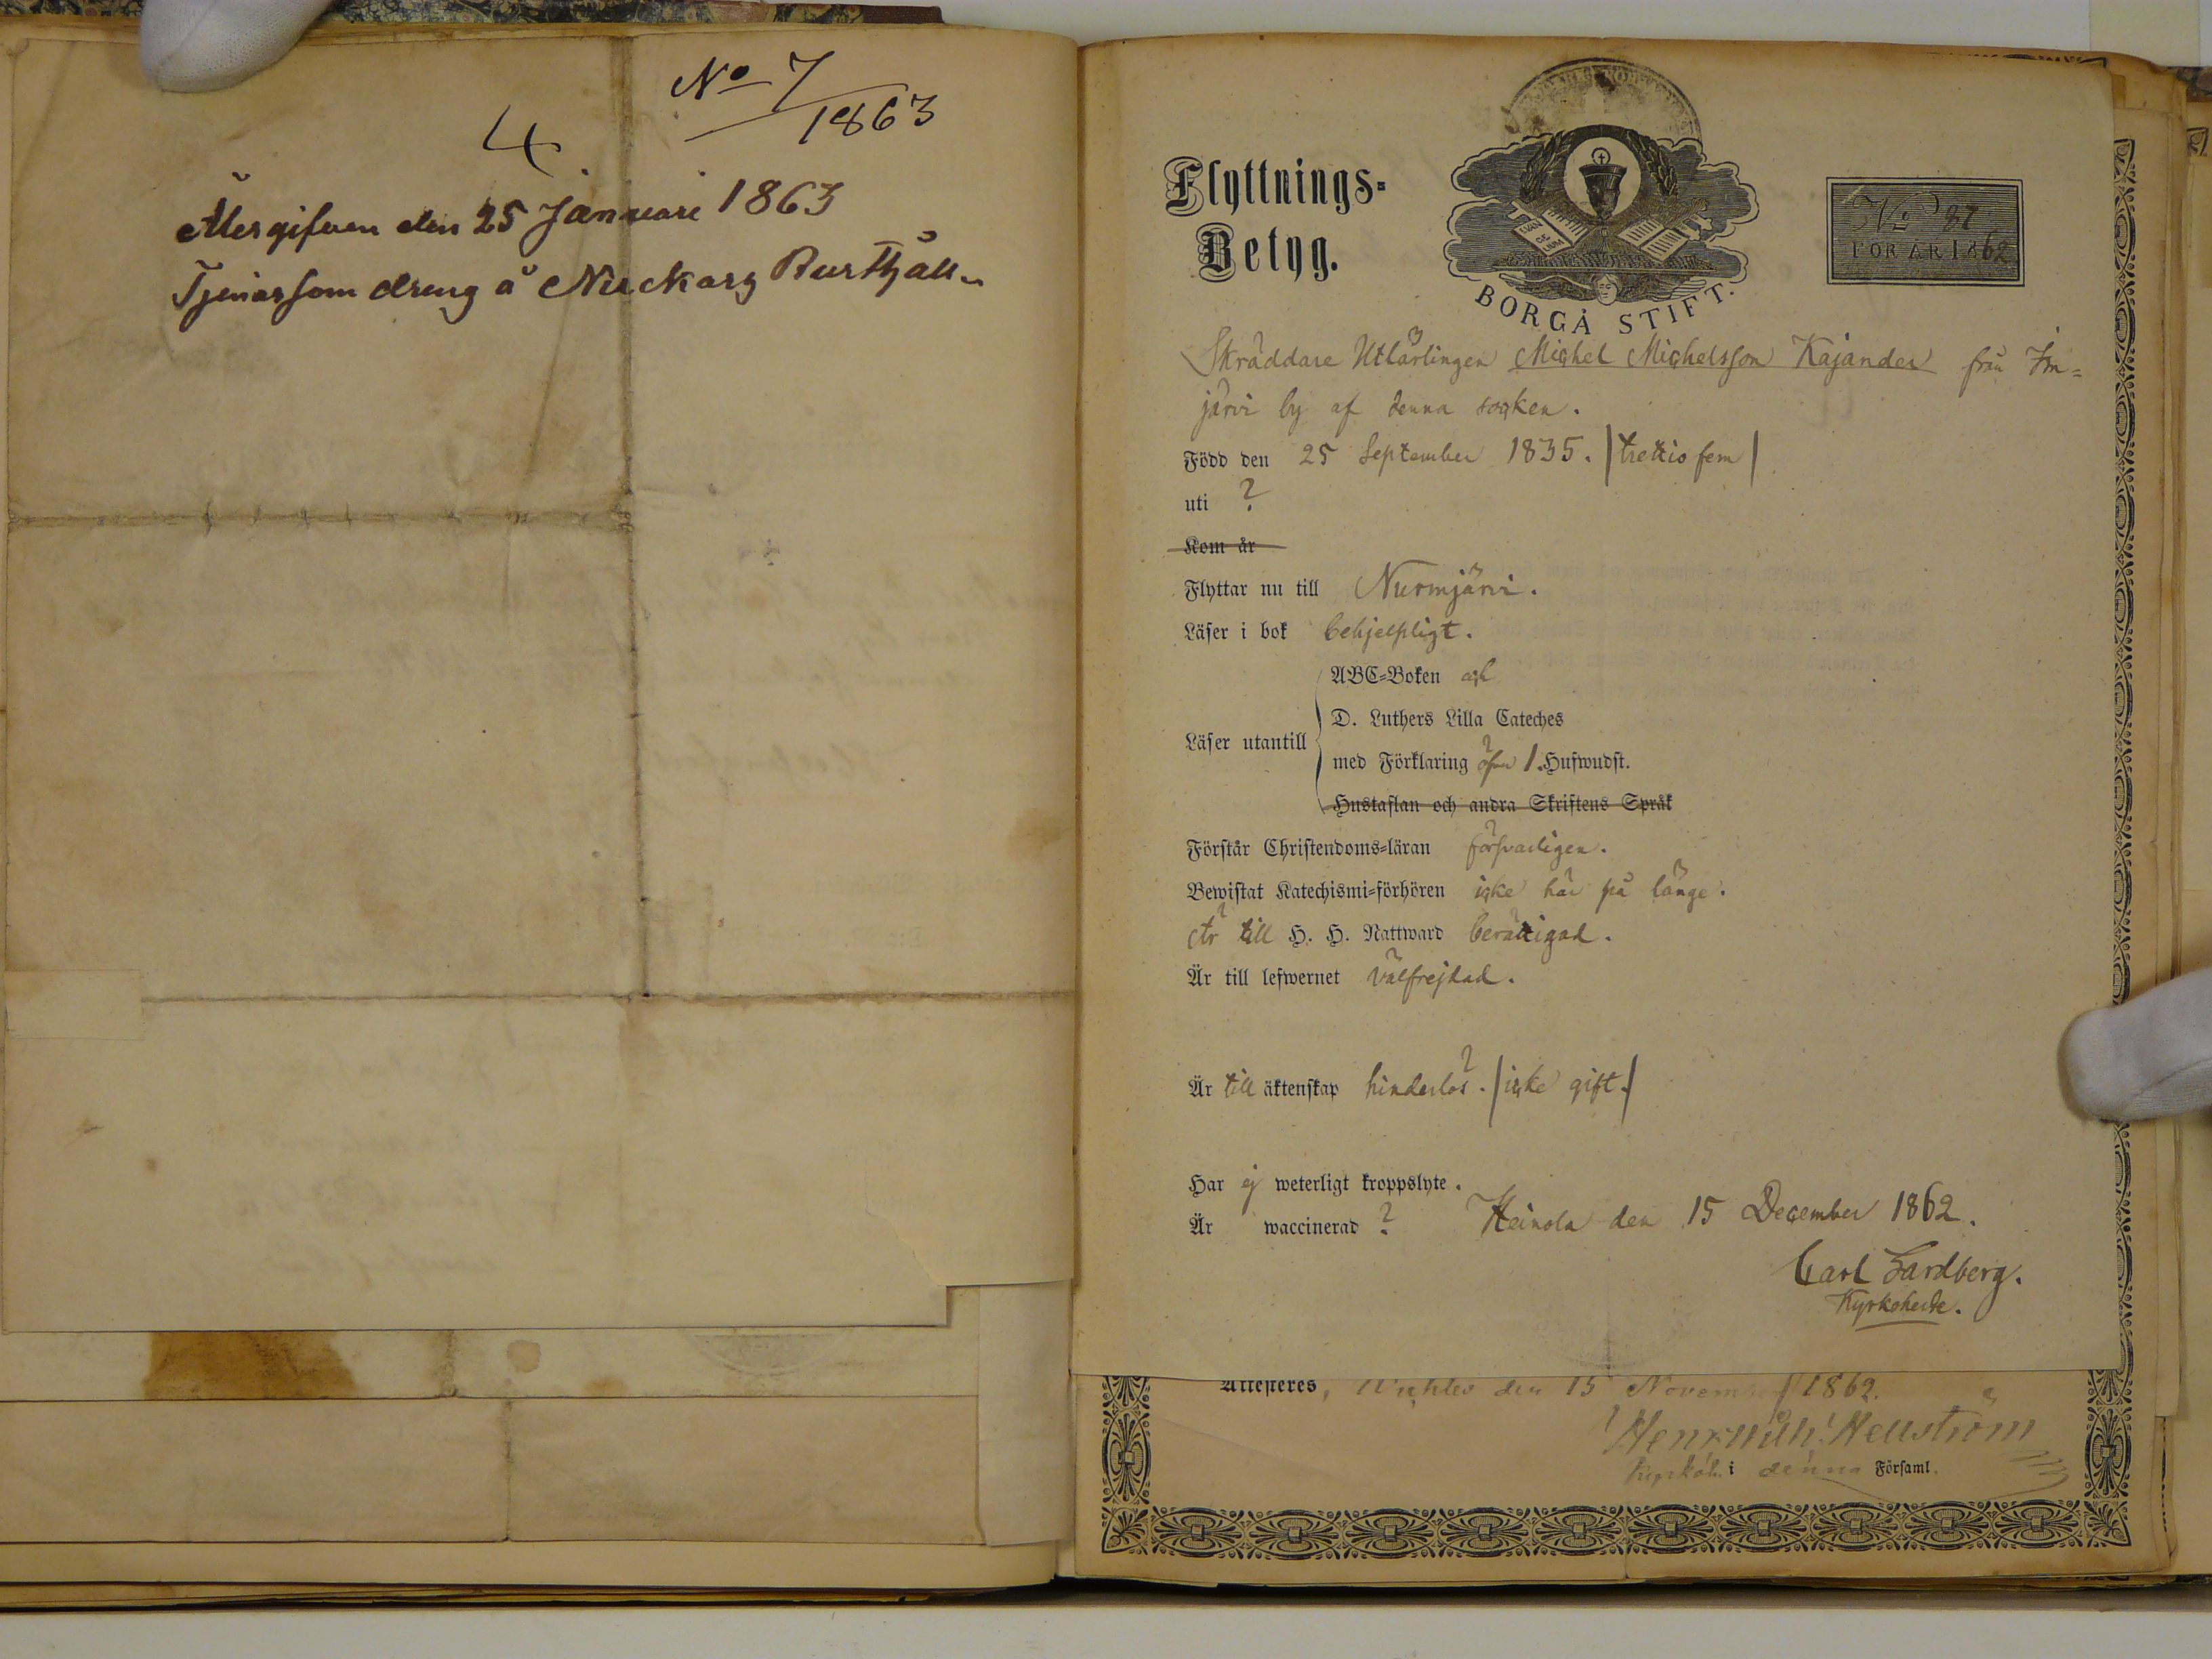 No 7
1863
4
Återgifven den 25 Januari 1863
Tjenar som dreng å Nuckars Rusthåll
Flyttnings=
Betyg.
EVAN
GE
LIUM
BORGÅ STIFT.
No 87
FÖR ÅR 1862
Skräddare Utlärlingen Michel Michelsson Kajander från Im=
järvi by af denna socken.
Född den 25 September 1835. /trettio fem/
uti ?
Kom år
Flyttar nu till Nurmijärvi.
Läser i bok behjelpligt.
ABC=Boken och
D. Luthers Lilla Cateches
Läser utantill
med Förklaring öfver 1. Hufwudst.
Hustaflan och andra Skriftens Språk
Förstår Christendoms=läran försvarligen.
Bewistat Katechismi=förhören icke här på länge.
Är till H. H. Nattward berättigad.
Är till lefwernet välfrejdad.
Är till äktenskap hinderlös. /icke gift./
Har ej weterligt kroppslyte.
Är waccinerad ? Heinola den 15 December 1862.
Carl Sardberg.
Kyrkoherde.
Attesteres, Wichtis den 15 November 1862.
Hellström
i denna Församl.